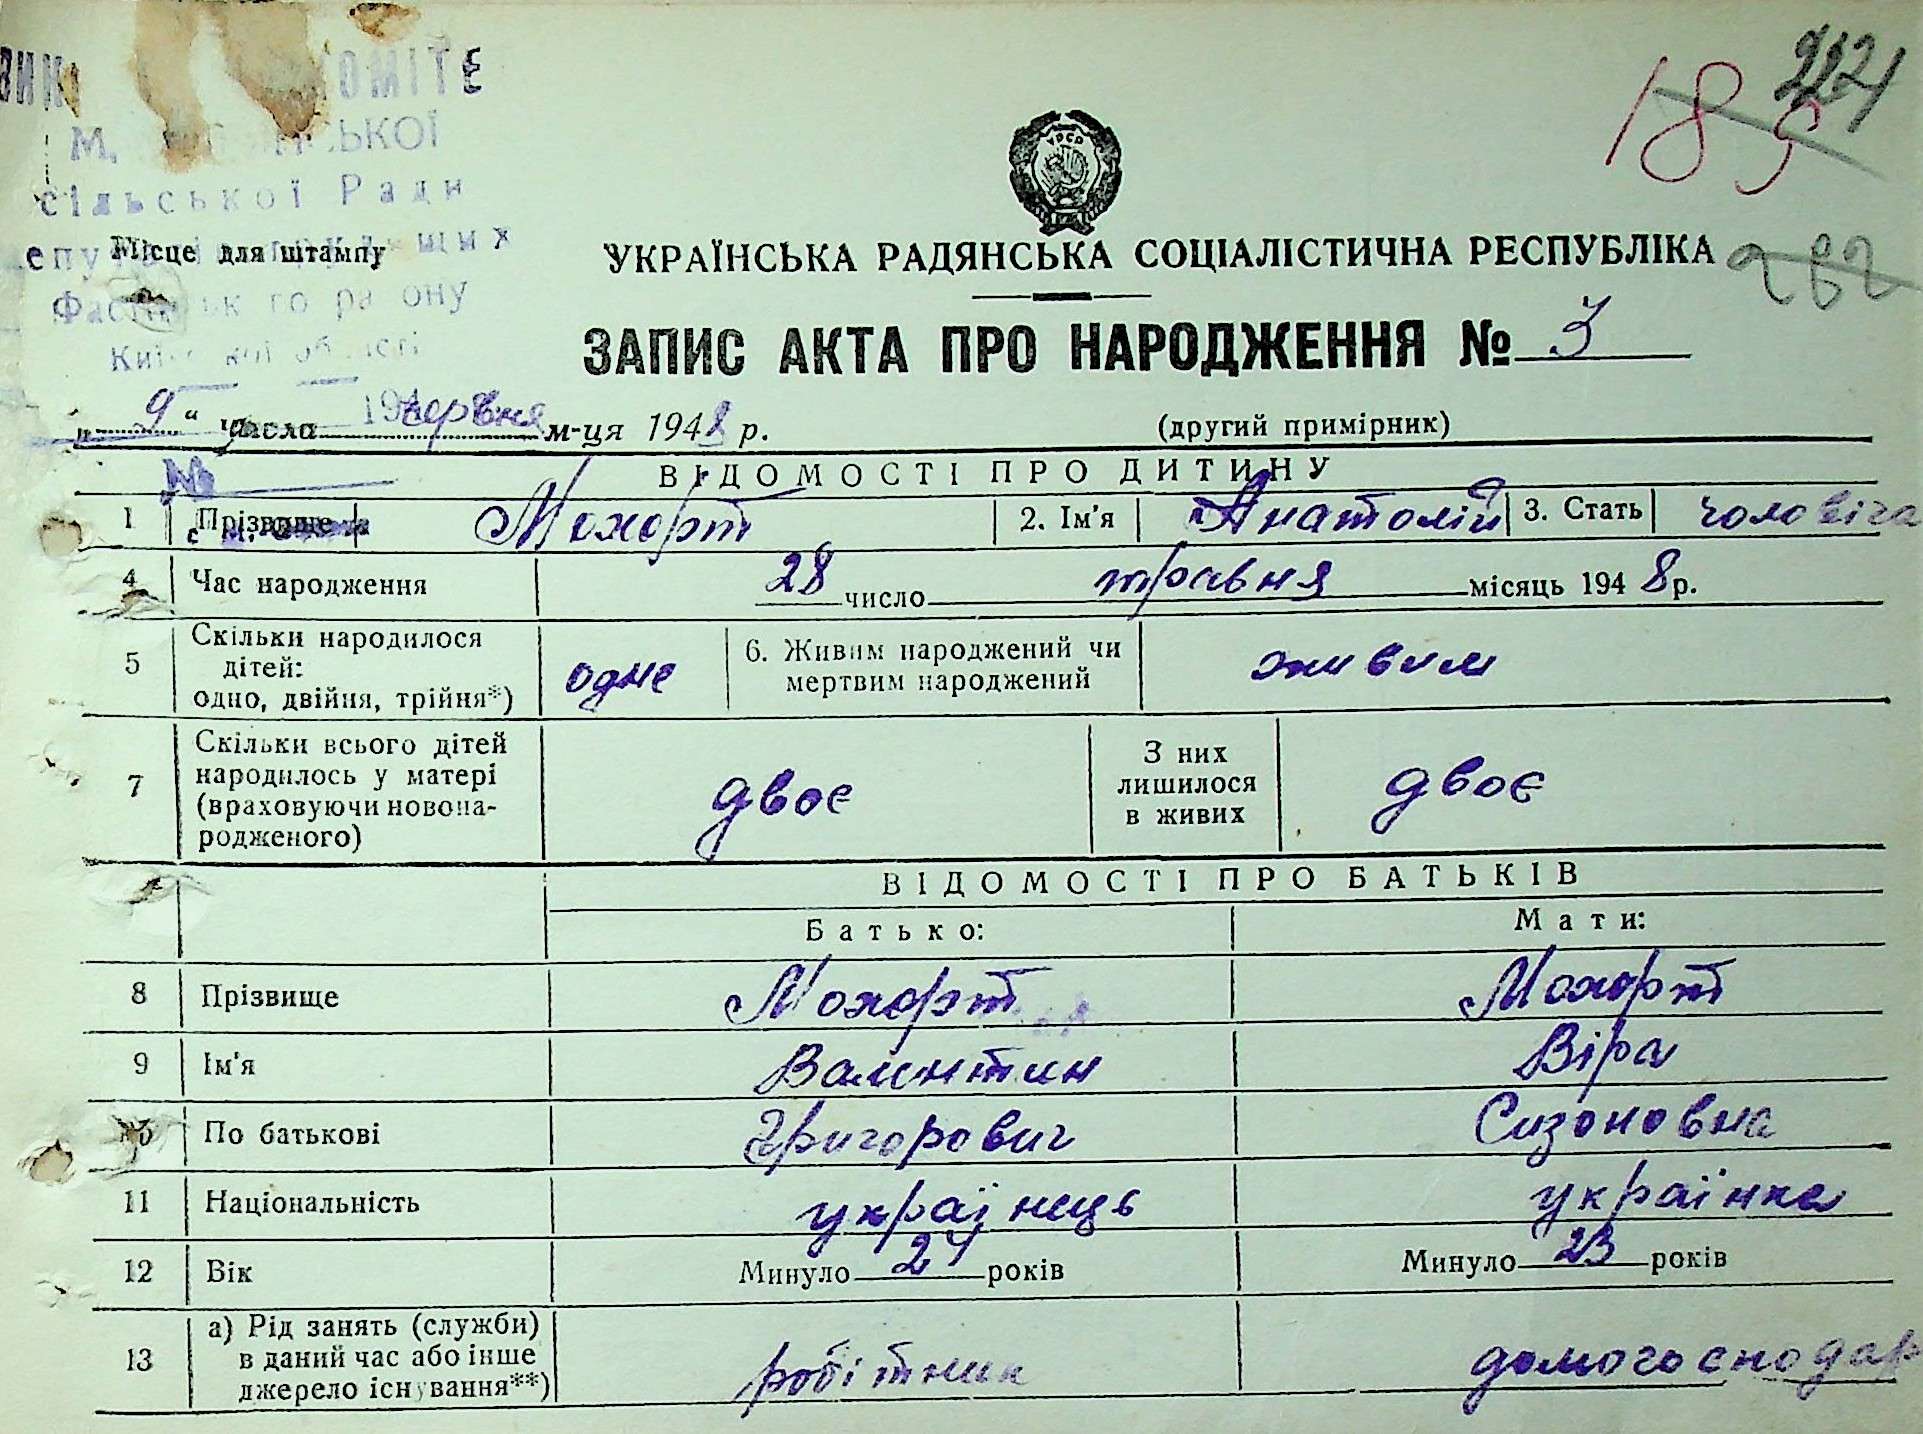 сільської Ради
Місце для штампу
УРСР
224
185
УКРАЇНСЬКА РАДЯНСЬКА СОЦІАЛІСТИЧНА РЕСПУБЛІКА
262
ЗАПИС АКТА ПРО НАРОДЖЕННЯ № 3
„ 9 “ числа червня м-ця 1948 р. (другий примірник)
ВІДОМОСТІ ПРО ДИТИНУ
1 Прізвище Мохорт 2. Ім'я Анатолій 3. Стать чоловіча
4 Час народження 28 число травня місяць 1948 р.
5 Скільки народилося
дітей:
одно, двійня, трійня*) одне 6. Живим народжений чи
мертвим народжений живим
7 Скільки всього дітей
народилось у матері
(враховуючи новона-
родженого) двоє З них
лишилося
в живих двоє
ВІДОМОСТІ ПРО БАТЬКІВ
Батько: Мати:
8 Прізвище Мохорт Мохорт
9 Ім'я Валентин Віра
10 По батькові Григорович Сизоновна
11 Національність українець українка
12 Вік Минуло 24 років Минуло 23 років
13 а) Рід занять (служби)
в даний час або інше
джерело існування**) робітник домогосподар